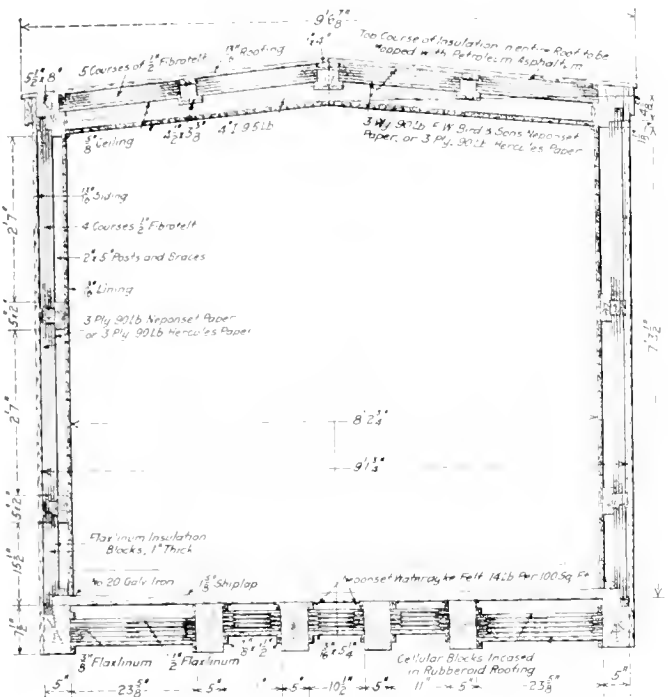 9'6 7/8"
Top Course of Insulation in entire Roof to be
Mopped with Petroleum Asphaltum
5 Courses of 1/2" Fibrofelt
13/16" Roofing
3/8" Ceiling
4" I 9.5 Lb
3 Ply 90 Lb F W Bird & Sons Neponset
Paper, or 3 Ply. 90 Lb Hercules Paper
13/16" Siding
4 Courses 1/2" Fibrofelt
2" x 5" Posts and Braces
Lining
3 Ply 90 Lb Neponset Paper
or 3 Ply 90 Lb Hercules Paper
2'7"
5 1/2"
2'7"
5 1/2"
15 1/2"
7 1/2"
7' 3 1/2"
8' 2 3/4"
9' 1 3/4"
Flaxlinum Insulation
Blocks, 1" Thick
No 20 Galv Iron
Shiplap
Neponset Waterdyke Felt 14 Lb Per 100 Sq Ft
Flaxlinum
1/2" Flaxlinum
Cellular Blocks Incased
in Rubberoid Roofing
5"
23 5/8"
5"
5"
10 1/2"
5"
11"
5"
23 5/8"
5"